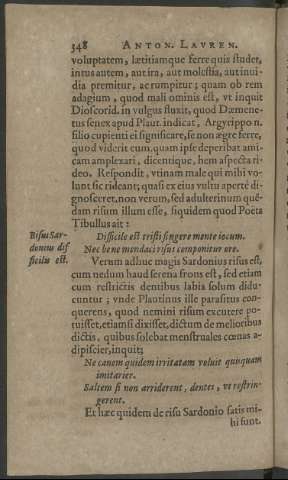 348 ANTON. LAVREN.
voluptatem, lætitiamque ferre quis studet,
intus autem, aut ira, aut molestia, aut inui-
dia premitur, ac rumpitur; quam ob rem
adagium, quod mali ominis est, vt inquit
Dioscorid. in vulgus fluxit, quod Dæmene-
tus senex apud Plaut. indicat, Argyrippo n.
filio cupienti ei significare, se non ægre ferre,
quod viderit eum, quam ipse deperibat ami-
cam amplexari, dicentique, hem aspecta ri-
deo. Respondit, vtinam male qui mihi vo-
lunt sic rideant; quasi ex eius vultu aperte di-
gnosceret, non verum, sed adulterinum quē-
dam risum illum esse, siquidem quod Poëta
Tibullus ait:
Risus Sar-
donius dif
ficilis est.
Difficile est tristi fingere mente iocum.
Nec bene mendaci risus componitur ore.
Verum adhuc magis Sardonius risus est,
cum nedum haud serena frons est, sed etiam
cum restrictis dentibus labia solum didu-
cuntur; vnde Plautinus ille parasitus con-
querens, quod nemini risum excutere po-
tuisset, etiamsi dixisset, dictum de melioribus
dictis, quibus solebat menstruales cœnas a-
dipiscier, inquit;
Ne canem quidem irritatam voluit quisquam
imitarier.
Saltem si non arriderent, dentes, vt restrin-
gerent.
Et hæc quidem de risu Sardonio satis mi-
hi sunt.